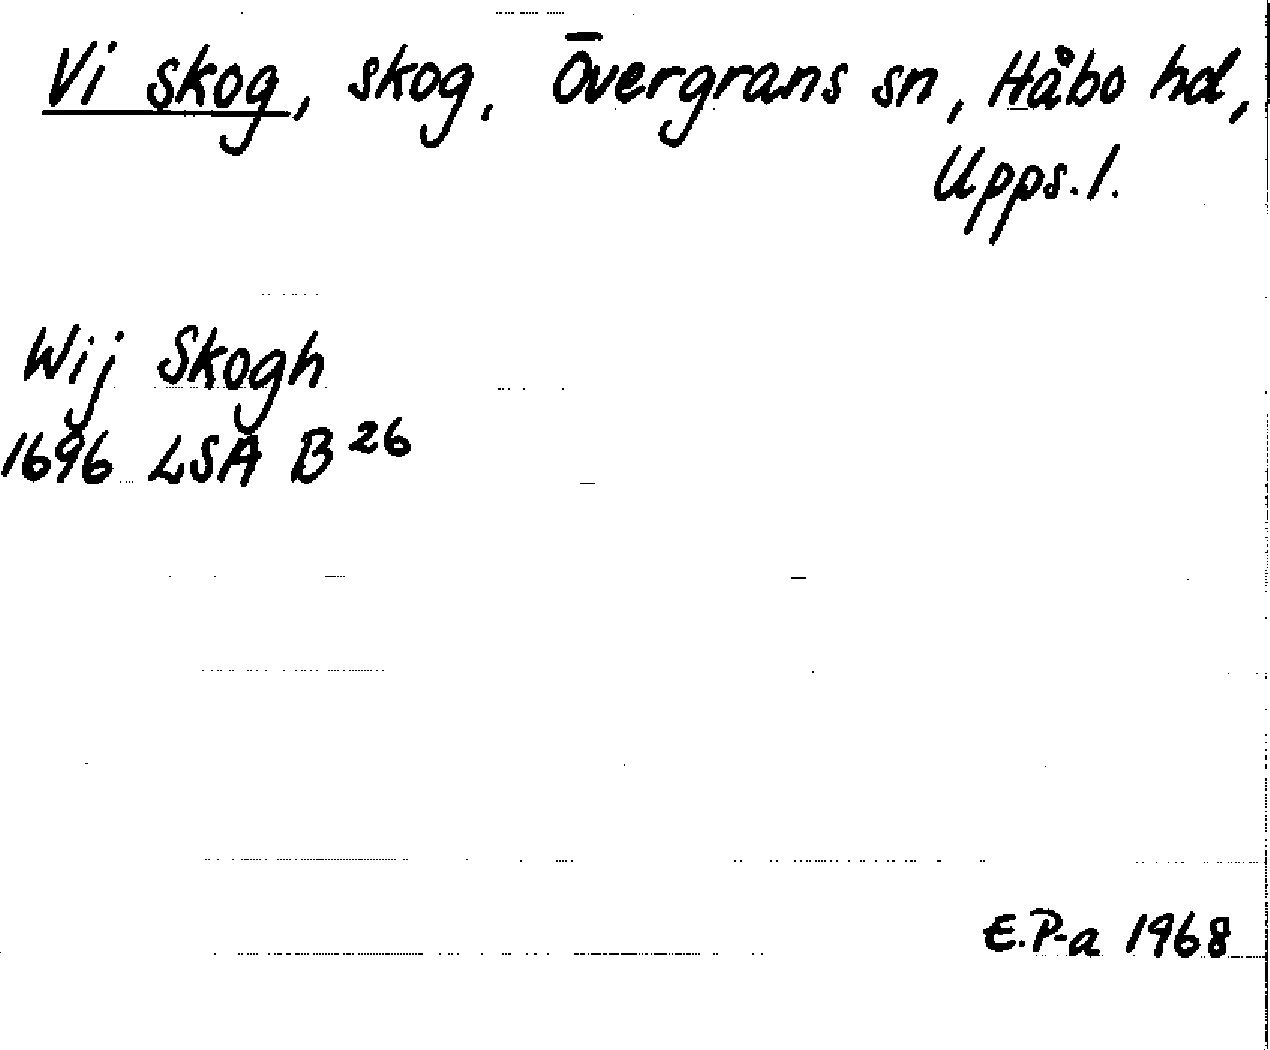 Vi skog, skog, Övergrans sn, Håbo hd,
Upps. l.
Wij Skogh
1696 LSA B 26
E.P-a 1968